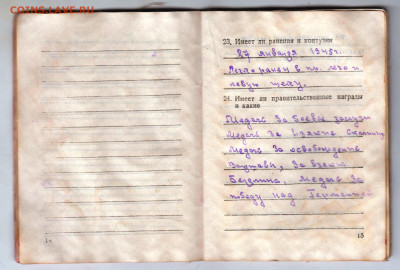 COINS.LAVE.RU
23. Имеет ли ранения и контузии
27 января 1945 г.
Легко ранен в
левую щеку.
24. Имеет ли правительственные награды
и какие
Медаль За боевые заслуги
Медаль За взятие
Медаль За освобождение
Варшавы, За взятие
Берлина, Медаль За
победу над Германией
14
15